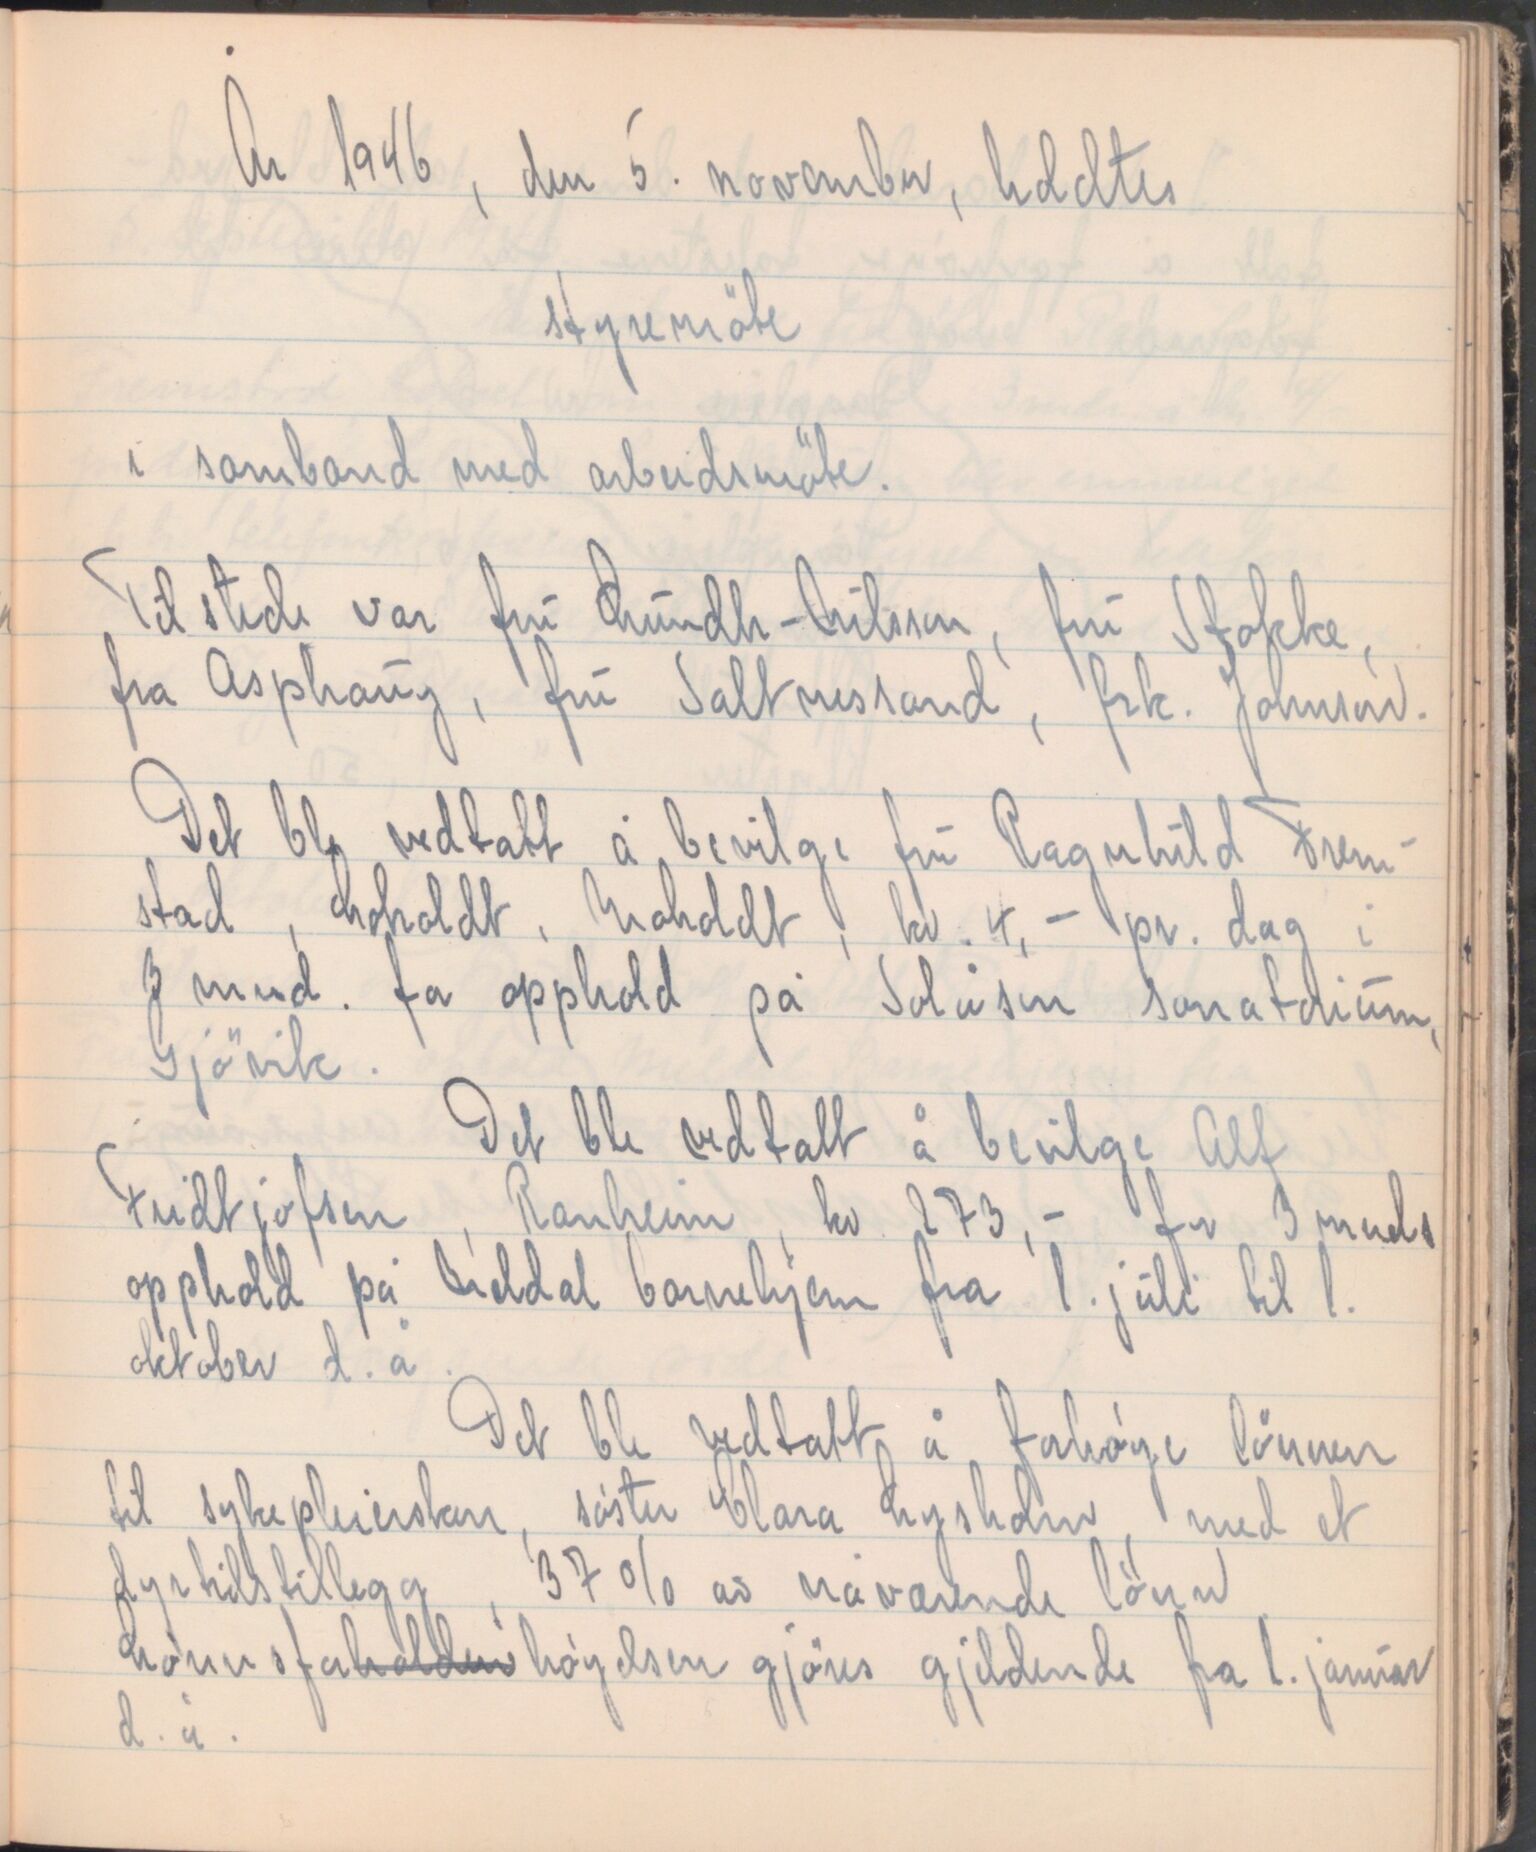 År 1946, den 5. november, holdtes
styremöte
i samband med arbeidsmöte.
Til stede var frü Lündh-Nilssen, frü Stokke,
fra Asphaüg, frü Saltnessand, frk. Johnsen.
Det ble vedtatt å bevilge frü Ragnhild Frem-
stad, Loholdt, Moholdt, kr. 4,- pr. dag i
3 mnd. for opphold på Solåsen sanatoriüm,
Gjövik.
Det ble vedtatt å bevilge Alf
Fridtjofsen, Ranheim, kr 273,- for 3 mnds
opphold på Meldal barnehjem fra 1. jüli til 1.
oktober d.å.
Det ble vedtatt å forhöye lönnen
til sykepleiersken, söster Clara Lysholm, med et
dyrtidstillegg, 37% av nåværende lönn
Lönnsforholdenhöyelsen gjöres gjeldende fra 1. janüar
d.å.